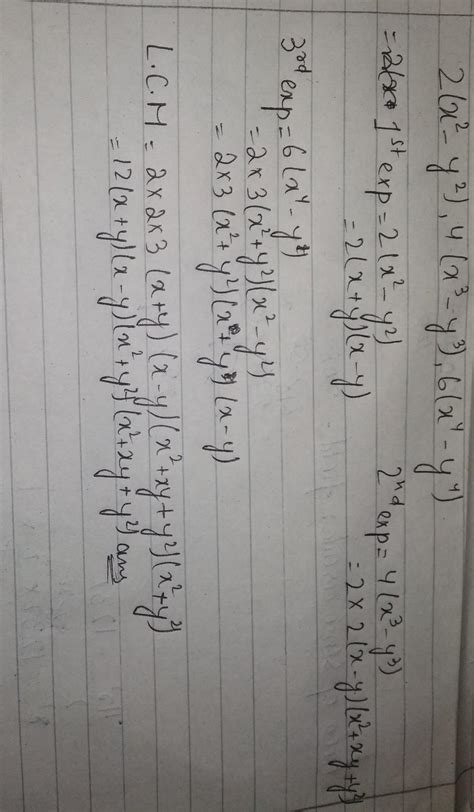 2(x² - y²), 4(x³ - y³), 6(x⁴ - y⁴)
1st exp = 2(x² - y²)
= 2(x+y)(x-y)
2nd exp = 4(x³ - y³)
= 2 × 2(x-y)(x²+xy+y²)
3rd exp = 6(x⁴ - y⁴)
= 2×3(x²+y²)(x²-y²)
= 2×3(x²+y²)(x+y)(x-y)
L.C.M = 2×2×3 (x+y) (x-y)(x²+xy+y²)(x²+y²)
= 12(x+y)(x-y)(x²+y²)(x²+xy+y²) ans